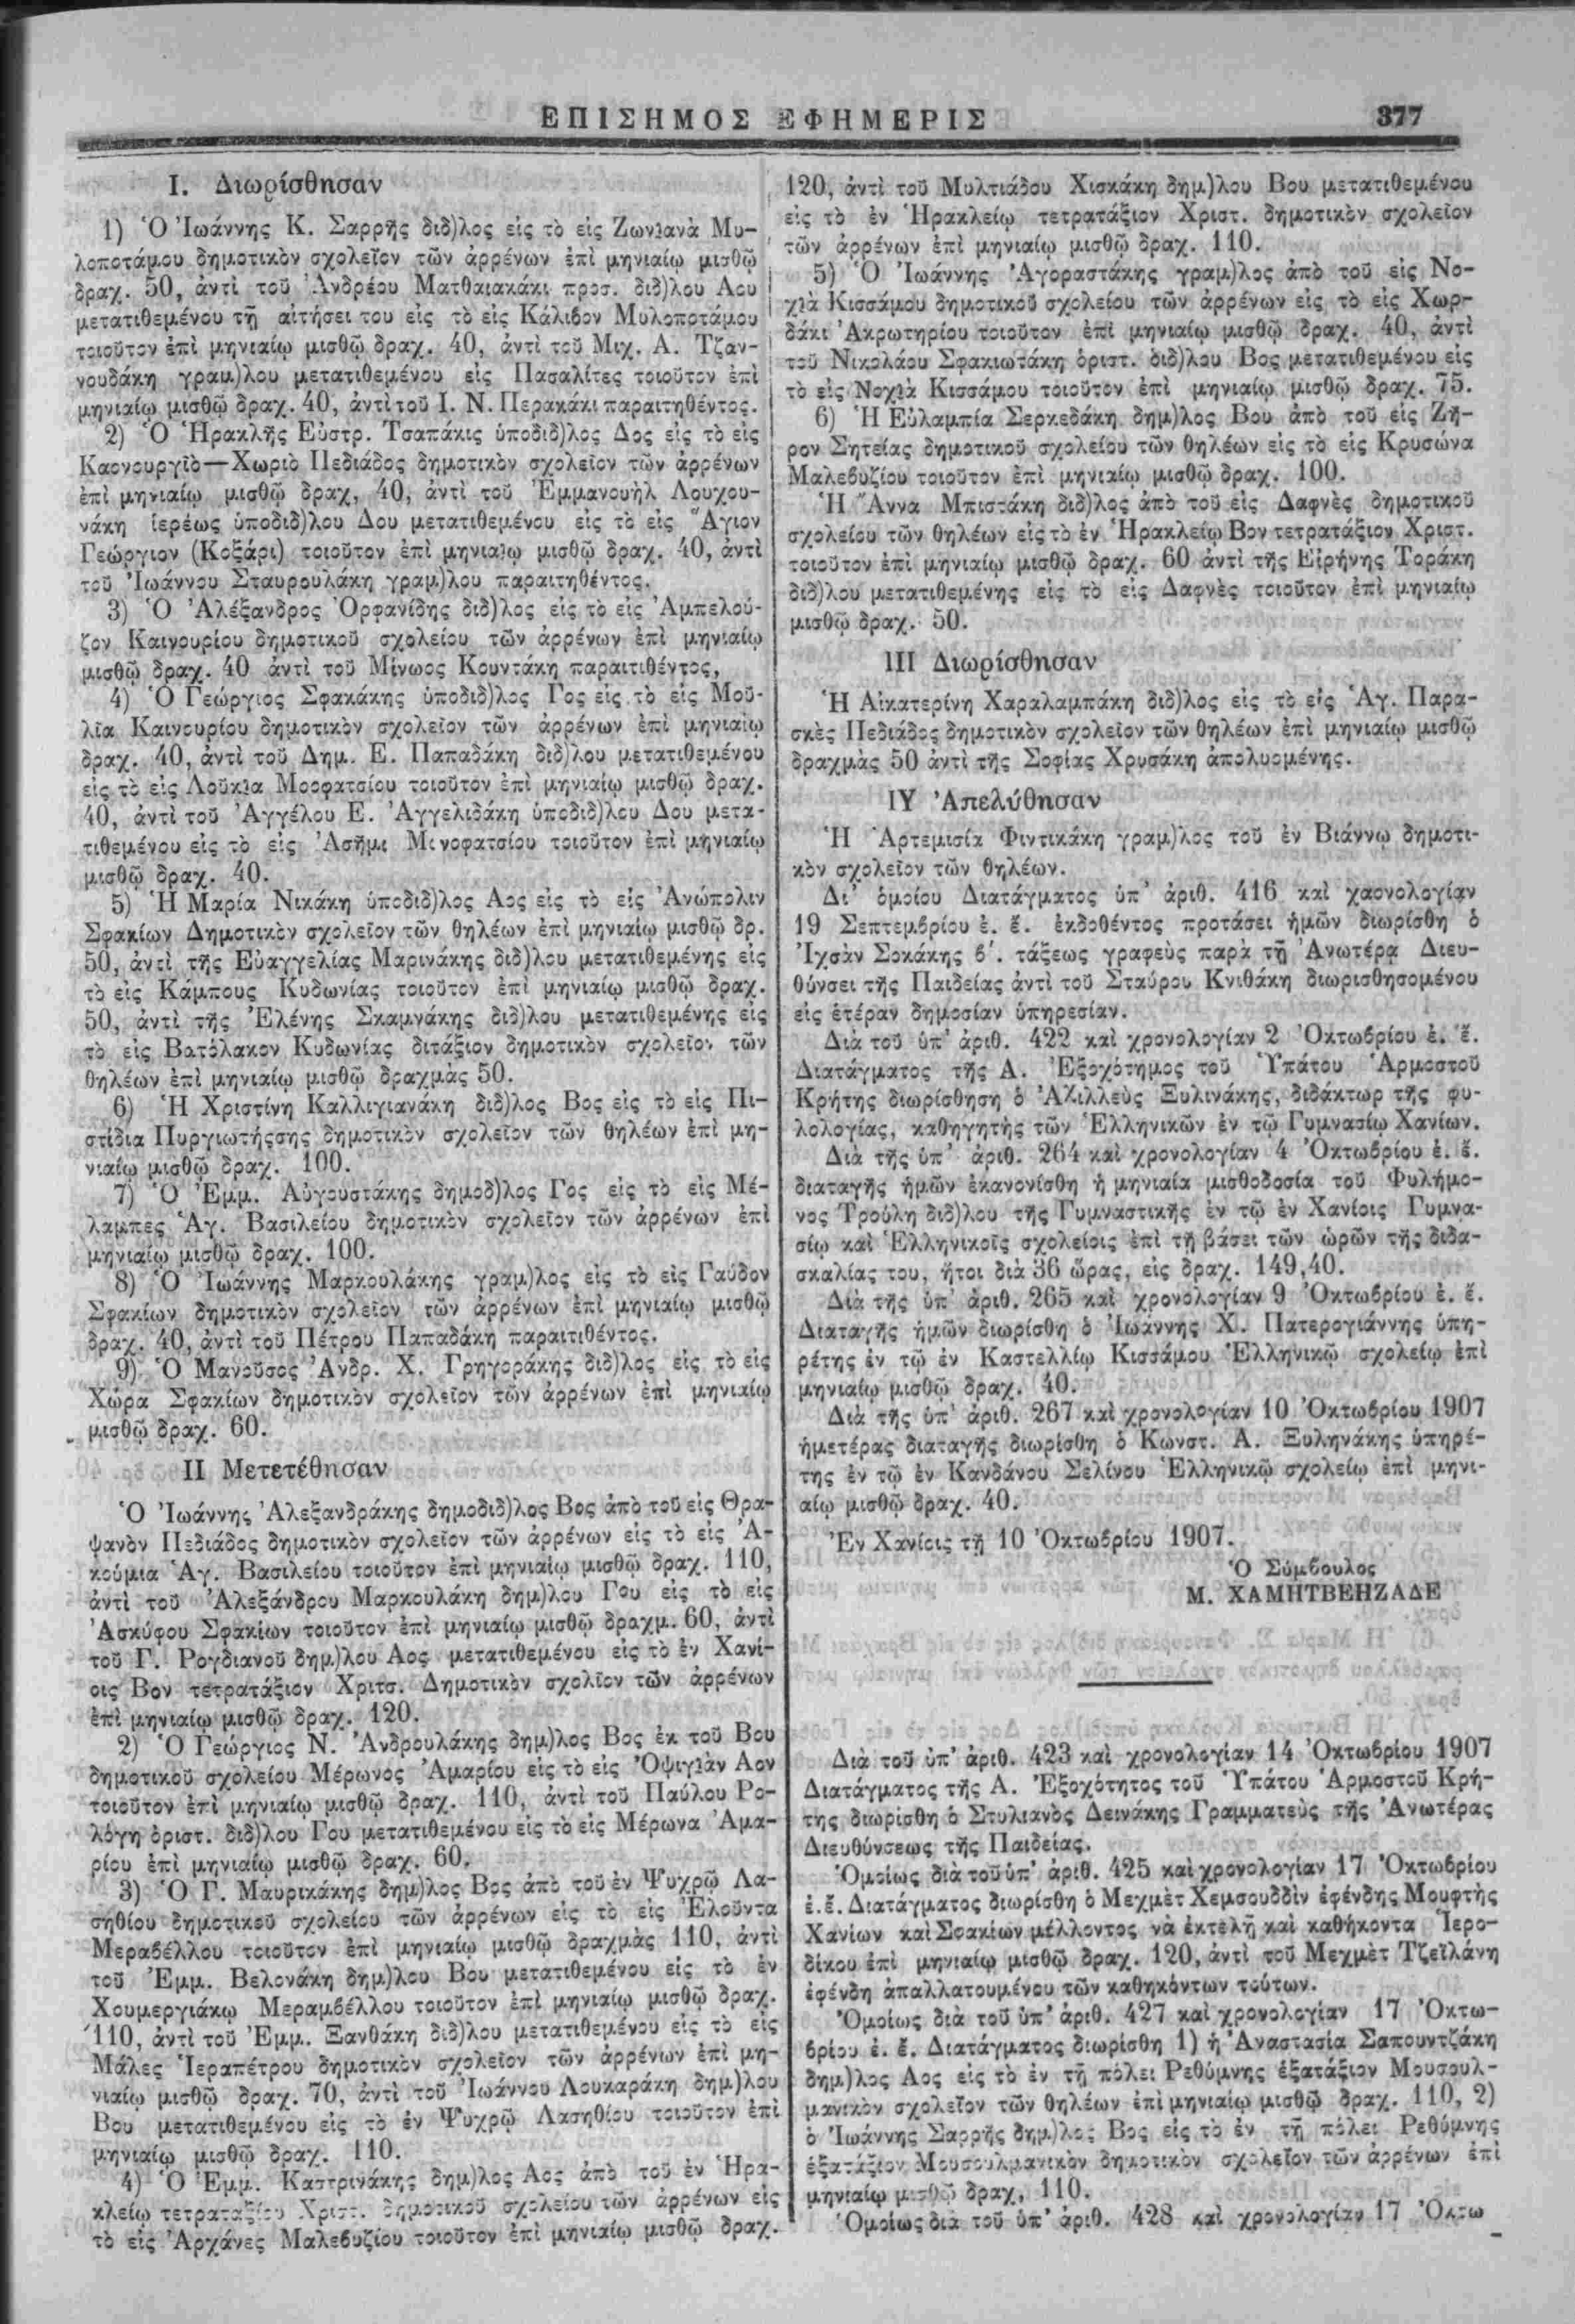 ΕΠΙΣΗΜΟΣ ΕΦΗΜΕΡΙΣ 377
Ι. Διωρίσθησαν
1) Ὁ Ἰωάννης Κ. Σαρρῆς διδ)λος εἰς τὸ εἰς Ζωνιανὰ Μυ-
λοποτάμου δημοτικὸν σχολεῖον τῶν ἀρρένων ἐπὶ μηνιαίῳ μισθῷ
δραχ. 50, ἀντὶ τοῦ Ἀνδρέου Ματθαιακάκι προσ. διδ)λου Αου
μετατιθεμένου τῇ αἰτήσει του εἰς τὸ εἰς Κάλιβον Μυλοποτάμου
τοιοῦτον ἐπὶ μηνιαίῳ μισθῷ δραχ. 40, ἀντὶ τοῦ Μιχ. Α. Τζαν-
νουδάκη γραμ)λου μετατιθεμένου εἰς Πασαλίτες τοιοῦτον ἐπὶ
μηνιαίῳ μισθῷ δραχ. 40, ἀντὶ τοῦ Ι. Ν. Περακάκι παραιτηθέντος.
2) Ὁ Ἡρακλῆς Εὐστρ. Τσαπάκις ὑποδιδ)λος Δος εἰς τὸ εἰς
Καονουργιὸ—Χωριὸ Πεδιάδος δημοτικὸν σχολεῖον τῶν ἀρρένων
ἐπὶ μηνιαίῳ μισθῷ δραχ, 40, ἀντὶ τοῦ Ἐμμανουὴλ Λουχου-
νάκη ἱερέως ὑποδιδ)λου Δου μετατιθεμένου εἰς τὸ εἰς Ἅγιον
Γεώργιον (Κοξάρι) τοιοῦτον ἐπὶ μηνιαίῳ μισθῷ δραχ. 40, ἀντὶ
τοῦ Ἰωάννου Σταυρουλάκη γραμ)λου παραιτηθέντος.
3) Ὁ Ἀλέξανδρος Ὀρφανίδης διδ)λος εἰς τὸ εἰς Ἀμπελού-
ζον Καινουρίου δημοτικοῦ σχολείου τῶν ἀρρένων ἐπὶ μηνιαίῳ
μισθῷ δραχ. 40 ἀντὶ τοῦ Μίνωος Κουντάκη παραιτιθέντος,
4) Ὁ Γεώργιος Σφακάκης ὑποδιδ)λος Γος εἰς τὸ εἰς Μοῦ-
λῖα Καινουρίου δημοτικὸν σχολεῖον τῶν ἀρρένων ἐπὶ μηνιαίῳ
δραχ. 40, ἀντὶ τοῦ Δημ. Ε. Παπαδάκη διδ)λου μετατιθεμένου
εἰς τὸ εἰς Λούκια Μοοφατσίου τοιοῦτον ἐπὶ μηνιαίῳ μισθῷ δραχ.
40, ἀντὶ τοῦ Ἀγγέλου Ε. Ἀγγελιδάκη ὑποδιδ)λου Δου μετα-
τιθεμένου εἰς τὸ εἰς Ἀσῆμι Μονοφατσίου τοιοῦτον ἐπὶ μηνιαίῳ
μισθῷ δραχ. 40.
5) Ἡ Μαρία Νικάκη ὑποδιδ)λος Αος εἰς τὸ εἰς Ἀνώπολιν
Σφακίων Δημοτικὸν σχολεῖον τῶν θηλέων ἐπὶ μηνιαίῳ μισθῷ δρ.
50, ἀντὶ τῆς Εὐαγγελίας Μαρινάκης διδ)λου μετατιθεμένης εἰς
τὸ εἰς Κάμπους Κυδωνίας τοιοῦτον ἐπὶ μηνιαίῳ μισθῷ δραχ.
50, ἀντὶ τῆς Ἑλένης Σκαμνάκης διδ)λου μετατιθεμένης εἰς
τὸ εἰς Βατόλακον Κυδωνίας διτάξιον δημοτικὸν σχολεῖον τῶν
θηλέων ἐπὶ μηνιαίῳ μισθῷ δραχμὰς 50.
6) Ἡ Χριστίνη Καλλιγιανάκη διδ)λος Βος εἰς τὸ εἰς Πι-
στίδια Πυργιωτήςσης δημοτικὸν σχολεῖον τῶν θηλέων ἐπὶ μη-
νιαίῳ μισθῷ δραχ. 100.
7) Ὁ Ἐμμ. Αὐγουστάκης δημοδ)λος Γος εἰς τὸ εἰς Μέ-
λαμπες Ἁγ. Βασιλείου δημοτικὸν σχολεῖον τῶν ἀρρένων ἐπὶ
μηνιαίῳ μισθῷ δραχ. 100.
8) Ὁ Ἰωάννης Μαρκουλάκης γραμ)λος εἰς τὸ εἰς Γαῦδον
Σφακίων δημοτικὸν σχολεῖον τῶν ἀρρένων ἐπὶ μηνιαίῳ μισθῷ
δραχ. 40, ἀντὶ τοῦ Πέτρου Παπαδάκη παραιτιθέντος.
9) Ὁ Μανοῦσος Ἀνδρ. Χ. Γρηγοράκης διδ)λος εἰς τὸ εἰς
Χώρα Σφακίων δημοτικὸν σχολεῖον τῶν ἀρρένων ἐπὶ μηνιαίῳ
μισθῷ δραχ. 60.
ΙΙ Μετετέθησαν
Ὁ Ἰωάννης Ἀλεξανδράκης δημοδιδ)λος Βος ἀπὸ τοῦ εἰς Θρα-
ψανὸν Πεδιάδος δημοτικὸν σχολεῖον τῶν ἀρρένων εἰς τὸ εἰς Ἀ-
κούμια Ἁγ. Βασιλείου τοιοῦτον ἐπὶ μηνιαίῳ μισθῷ δραχ. 110,
ἀντὶ τοῦ Ἀλεξάνδρου Μαρκουλάκη δημ)λου Γου εἰς τὸ εἰς
Ἀσκύφου Σφακίων τοιοῦτον ἐπὶ μηνιαίῳ μισθῷ δραχμ. 60, ἀντὶ
τοῦ Γ. Ρογδιανοῦ δημ)λου Αος μετατιθεμένου εἰς τὸ ἐν Χανί-
οις Βον τετρατάξιον Χριτσ. Δημοτικὸν σχολῖον τῶν ἀρρένων
ἐπὶ μηνιαίῳ μισθῷ δραχ. 120.
2) Ὁ Γεώργιος Ν. Ἀνδρουλάκης δημ)λος Βος ἐκ τοῦ Βου
δημοτικοῦ σχολείου Μέρωνος Ἀμαρίου εἰς τὸ εἰς Ὀψιγιὰν Αον
τοιοῦτον ἐπὶ μηνιαίῳ μισθῷ δραχ. 110, ἀντὶ τοῦ Παύλου Ρο-
λόγη ὁριστ. διδ)λου Γου μετατιθεμένου εἰς τὸ εἰς Μέρωνα Ἀμα-
ρίου ἐπὶ μηνιαίῳ μισθῷ δραχ. 60.
3) Ὁ Γ. Μαυρικάκης δημ)λος Βος ἀπὸ τοῦ ἐν Ψυχρῷ Λα-
σηθίου δημοτικοῦ σχολείου τῶν ἀρρένων εἰς τὸ εἰς Ἐλοῦντα
Μεραβέλλου τοιοῦτον ἐπὶ μηνιαίῳ μισθῷ δραχμὰς 110, ἀντὶ
τοῦ Ἐμμ. Βελονάκη δημ)λου Βου μετατιθεμένου εἰς τὸ ἐν
Χουμεργιάκῳ Μεραμβέλλου τοιοῦτον ἐπὶ μηνιαίῳ μισθῷ δραχ.
110, ἀντὶ τοῦ Ἐμμ. Ξανθάκη διδ)λου μετατιθεμένου εἰς τὸ εἰς
Μάλες Ἱεραπέτρου δημοτικὸν σχολεῖον τῶν ἀρρένων ἐπὶ μη-
νιαίῳ μισθῷ δραχ. 70, ἀντὶ τοῦ Ἰωάννου Λουκαράκη δημ)λου
Βου μετατιθεμένου εἰς τὸ ἐν Ψυχρῷ Λασηθίου τοιοῦτον ἐπὶ
μηνιαίῳ μισθῷ δραχ. 110.
4) Ὁ Ἐμμ. Καστρινάκης δημ)λος Αος ἀπὸ τοῦ ἐν Ἡρα-
κλείῳ τετραταξίου Χριστ. δημοτικοῦ σχολείου τῶν ἀρρένων εἰς
τὸ εἰς Ἀρχάνες Μαλεβυζίου τοιοῦτον ἐπὶ μηνιαίῳ μισθῷ δραχ.
120, ἀντὶ τοῦ Μυλτιάδου Χισκάκη δημ)λου Βου μετατιθεμένου
εἰς τὸ ἐν Ἡρακλείῳ τετρατάξιον Χριστ. δημοτικὸν σχολεῖον
τῶν ἀρρένων ἐπὶ μηνιαίῳ μισθῷ δραχ. 110.
5) Ὁ Ἰωάννης Ἀγοραστάκης γραμ)λος ἀπὸ τοῦ εἰς Νο-
χιὰ Κισσάμου δημοτικοῦ σχολείου τῶν ἀρρένων εἰς τὸ εἰς Χωρ-
δάκι Ἀκρωτηρίου τοιοῦτον ἐπὶ μηνιαίῳ μισθῷ δραχ. 40, ἀντὶ
τοῦ Νικολάου Σφακιωτάκη ὁριστ. διδ)λου Βος μετατιθεμένου εἰς
τὸ εἰς Νοχιὰ Κισσάμου τοιοῦτον ἐπὶ μηνιαίῳ μισθῷ δραχ. 75.
6) Ἡ Εὐλαμπία Σερκεδάκη δημ)λος Βου ἀπὸ τοῦ εἰς Ζῆ-
ρον Σητείας δημοτικοῦ σχολείου τῶν θηλέων εἰς τὸ εἰς Κρυσώνα
Μαλεβυζίου τοιοῦτον ἐπὶ μηνιαίῳ μισθῷ δραχ. 100.
Ἡ Ἄννα Μπιστάκη διδ)λος ἀπὸ τοῦ εἰς Δαφνὲς δημοτικοῦ
σχολείου τῶν θηλέων εἰς τὸ ἐν Ἡρακλείῳ Βον τετρατάξιον Χριστ.
τοιοῦτον ἐπὶ μηνιαίῳ μισθῷ δραχ. 60 ἀντὶ τῆς Εἰρήνης Τοράκη
διδ)λου μετατιθεμένης εἰς τὸ εἰς Δαφνὲς τοιοῦτον ἐπὶ μηνιαίῳ
μισθῷ δραχ. 50.
ΙΙΙ Διωρίσθησαν
Ἡ Αἰκατερίνη Χαραλαμπάκη διδ)λος εἰς τὸ εἰς Ἁγ. Παρα-
σκὲς Πεδιάδος δημοτικὸν σχολεῖον τῶν θηλέων ἐπὶ μηνιαίῳ μισθῷ
δραχμὰς 50 ἀντὶ τῆς Σοφίας Χρυσάκη ἀπολυομένης.
ΙΥ Ἀπελύθησαν
Ἡ Ἀρτεμισία Φιντικάκη γραμ)λος τοῦ ἐν Βιάννῳ δημοτι-
κὸν σχολεῖον τῶν θηλέων.
Δι' ὁμοίου Διατάγματος ὑπ' ἀριθ. 416 καὶ χαονολογίαν
19 Σεπτεμβρίου ἐ. ἔ. ἐκδοθέντος προτάσει ἡμῶν διωρίσθη ὁ
Ἰχσὰν Σοκάκης β΄. τάξεως γραφεὺς παρὰ τῇ Ἀνωτέρα Διευ-
θύνσει τῆς Παιδείας ἀντὶ τοῦ Σταύρου Κνιθάκη διωρισθησομένου
εἰς ἑτέραν δημοσίαν ὑπηρεσίαν.
Διὰ τοῦ ὑπ' ἀριθ. 422 καὶ χρονολογίαν 2 Ὀκτωβρίου ἐ. ἔ.
Διατάγματος τῆς Α. Ἐξοχότημος τοῦ Ὑπάτου Ἁρμοστοῦ
Κρήτης διωρίσθηση ὁ Ἀχιλλεὺς Ξυλινάκης, διδάκτωρ τῆς φυ-
λολογίας, καθηγητὴς τῶν Ἑλληνικῶν ἐν τῷ Γυμνασίῳ Χανίων.
Διὰ τῆς ὑπ' ἀριθ. 264 καὶ χρονολογίαν 4 Ὀκτωβρίου ἐ. ἔ.
διαταγῆς ἡμῶν ἐκανονίσθη ἡ μηνιαία μισθοδοσία τοῦ Φυλήμο-
νος Τρούλη διδ)λου τῆς Γυμναστικῆς ἐν τῷ ἐν Χανίοις Γυμνα-
σίῳ καὶ Ἑλληνικοῖς σχολείοις ἐπὶ τῇ βάσει τῶν ὡρῶν τῆς διδα-
σκαλίας του, ἤτοι διὰ 36 ὥρας, εἰς δραχ. 149,40.
Διὰ τῆς ὑπ' ἀριθ. 265 καὶ χρονολογίαν 9 Ὀκτωβρίου ἐ. ἔ.
Διαταγῆς ἡμῶν διωρίσθη ὁ Ἰωάννης Χ. Πατερογιάννης ὑπη-
ρέτης ἐν τῷ ἐν Καστελλίῳ Κισσάμου Ἑλληνικῷ σχολείῳ ἐπὶ
μηνιαίῳ μισθῷ δραχ. 40.
Διὰ τῆς ὑπ' ἀριθ. 267 καὶ χρονολογίαν 10 Ὀκτωβρίου 1907
ἡμετέρας διαταγῆς διωρίσθη ὁ Κωνστ. Α. Ξυληνάκης ὑπηρέ-
της ἐν τῷ ἐν Κανδάνου Σελίνου Ἑλληνικῷ σχολείῳ ἐπὶ μηνι-
αίῳ μισθῷ δραχ. 40.
Ἐν Χανίοις τῇ 10 Ὀκτωβρίου 1907.
Ὁ Σύμβουλος
Μ. ΧΑΜΗΤΒΕΗΖΑΔΕ
Διὰ τοῦ ὑπ' ἀριθ. 423 καὶ χρονολογίαν 14 Ὀκτωβρίου 1907
Διατάγματος τῆς Α. Ἐξοχότητος τοῦ Ὑπάτου Ἁρμοστοῦ Κρή-
της διωρίσθη ὁ Στυλιανὸς Δεινάκης Γραμματεὺς τῆς Ἀνωτέρας
Διευθύνσεως τῆς Παιδείας.
Ὁμοίως διὰ τοῦ ὑπ' ἀριθ. 425 καὶ χρονολογίαν 17 Ὀκτωβρίου
ἐ. ἔ. Διατάγματος διωρίσθη ὁ Μεχμὲτ Χεμσουδδὶν ἐφένδης Μουφτὴς
Χανίων καὶ Σφακίων μέλλοντος νὰ ἐκτελῇ καὶ καθήκοντα Ἱερο-
δίκου ἐπὶ μηνιαίῳ μισθῷ δραχ. 120, ἀντὶ τοῦ Μεχμὲτ Τζεϊλάνη
ἐφένδη ἀπαλλατουμένου τῶν καθηκόντων τούτων.
Ὁμοίως διὰ τοῦ ὑπ' ἀριθ. 427 καὶ χρονολογίαν 17 Ὀκτω-
βρίου ἐ. ἔ. Διατάγματος διωρίσθη 1) ἡ Ἀναστασία Σαπουντζάκη
δημ)λος Αος εἰς τὸ ἐν τῇ πόλει Ρεθύμνης ἑξατάξιον Μουσουλ-
μανικὸν σχολεῖον τῶν θηλέων ἐπὶ μηνιαίῳ μισθῷ δραχ. 110, 2)
ὁ Ἰωάννης Σαρρῆς δημ)λος Βος εἰς τὸ ἐν τῇ πόλει Ρεθύμνης
ἑξατάξιον Μουσουλμανικὸν δημοτικὸν σχολεῖον τῶν ἀρρένων ἐπὶ
μηνιαίῳ μισθῷ δραχ, 110.
Ὁμοίως διὰ τοῦ ὑπ' ἀριθ. 428 καὶ χρονολογίαν 17 Ὀκτω